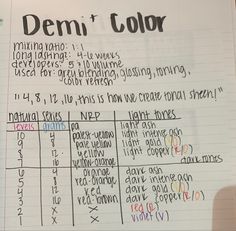 Demi+ Color
mixing ratio: 1:1
long lasting?: 4-6 weeks
developers: 5 & 10 volume
used for: grey blending, glossing, toning,
color refresh
"4, 8, 12, 16, this is how we create tonal sheen!"
natural series NRP light tones
levels grams pa light ash
10 4 palest-yellow light intense ash
9 8 pale yellow light gold (Y)
8 12 yellow light copper (R/O)
7 16 yellow-orange dark tones
6 4 orange dark ash
5 8 red-orange dark intense ash
4 12 red dark gold (Y)
3 16 red-brown dark copper (R/O)
2 X X red (R)
1 X X violet (V)